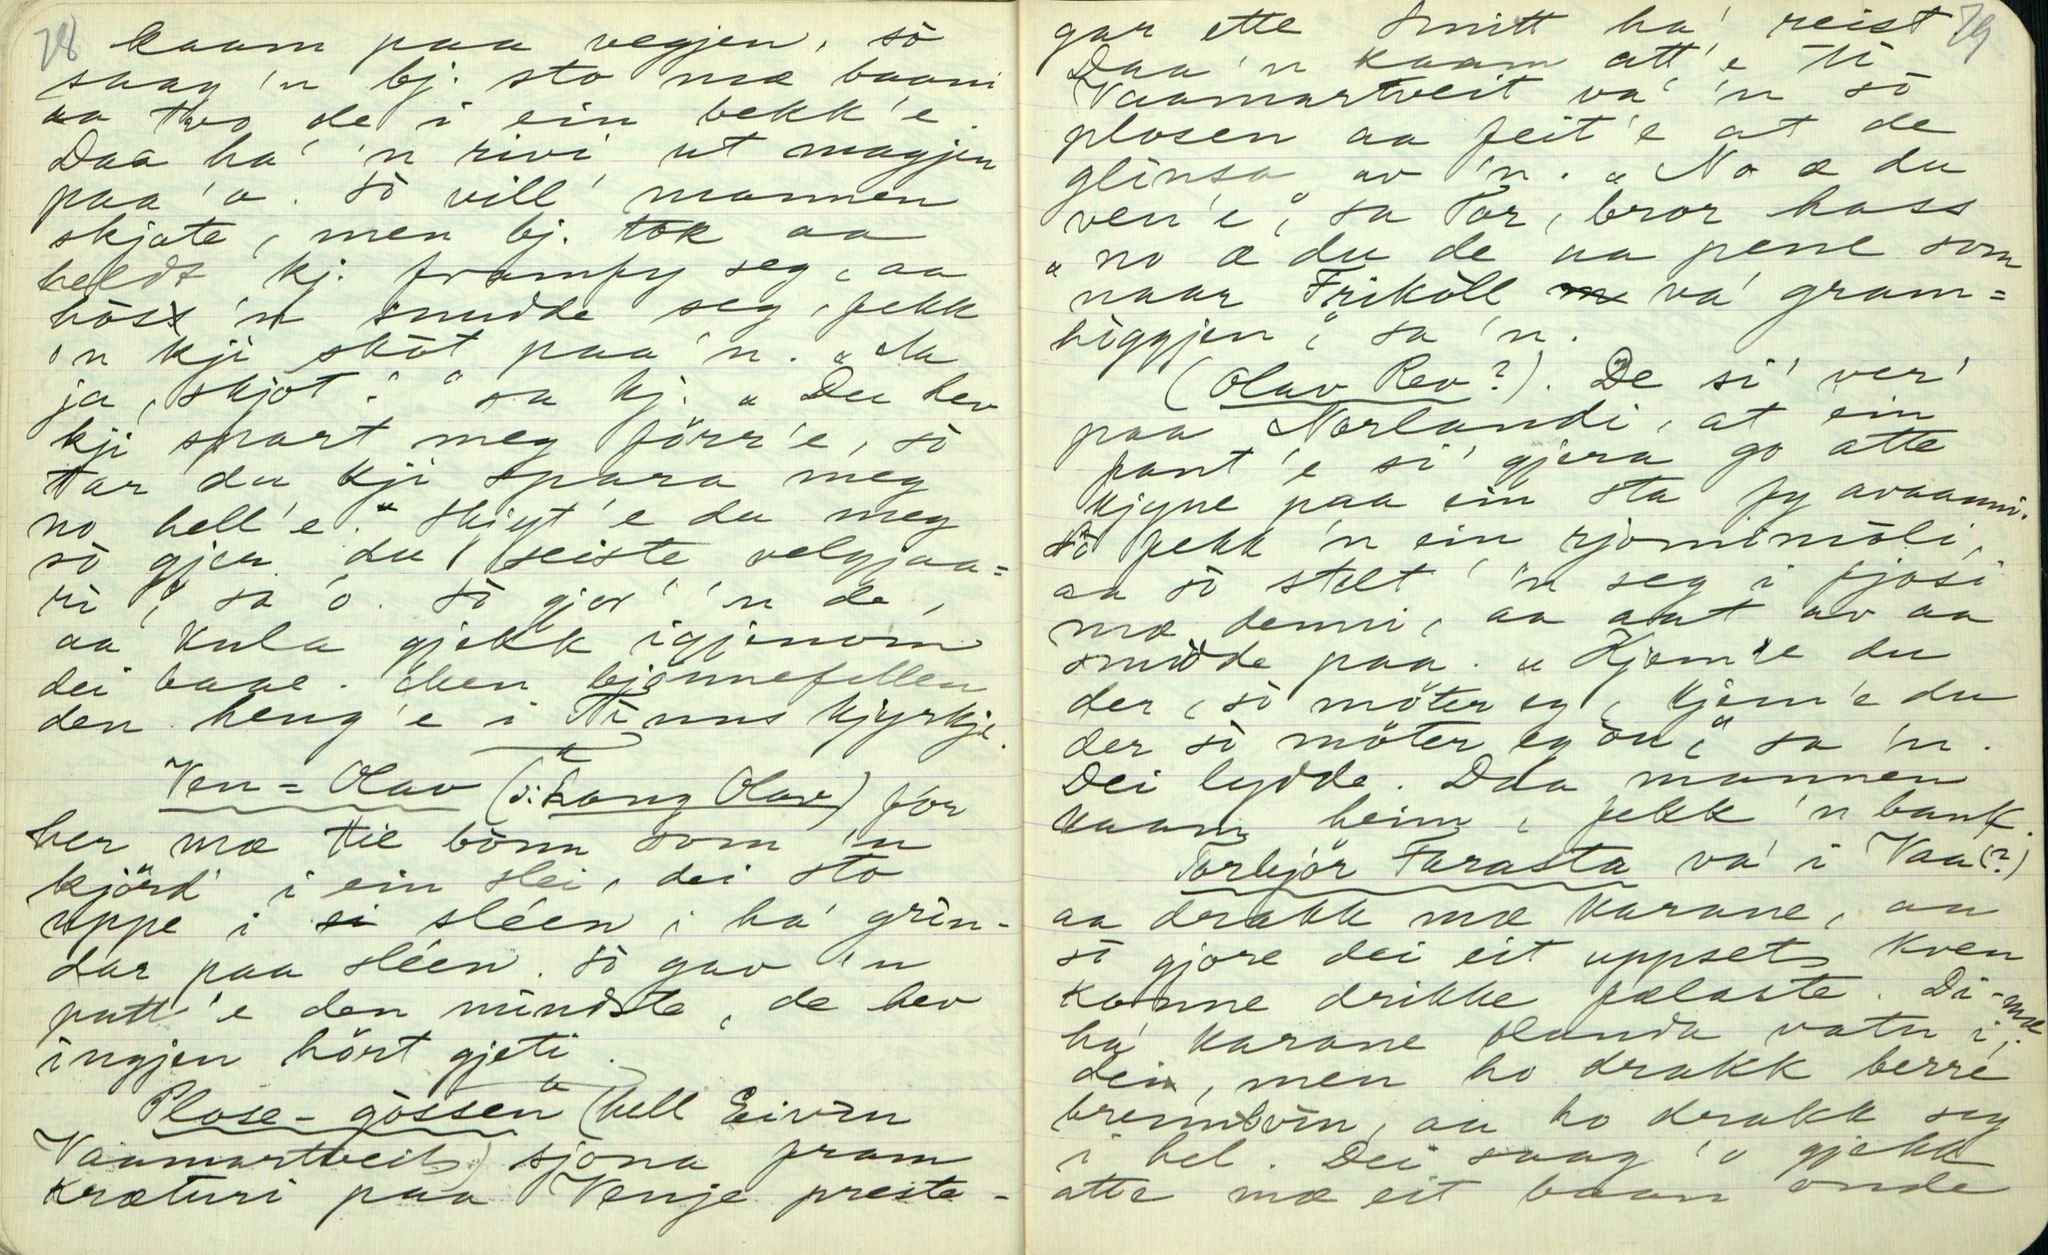 78
kaam paa vegjen, sò
saag 'n bj. sto mæ baani
aa two de i ein bekk'e.
Daa ha' 'n rivi' ut magjen
paa 'o. Sò vill' mannen
skjote, men bj. tok aa
heldt kj. framfy seg, aa
hòss 'n snudde seg, fekk
'n kji skòt paa 'n. „Ja
ja, skjot!" sa kj. „Du hev
kji spart meg förr'e, sò
tar du kji spara meg
no hell'e." Skjyt'e du meg
sò gjer du seiste velgjaa=
ri", sa 'o. Sò gjor' 'n de,
aa kula gjekk igjenom
dei baae. Men bjönnefellen
den heng'e i Tinns kjyrkje.
Ven=Olav (ɔ: Lang Olav) for
her mæ tie bònn som 'n
kjörd' i ein slei, dei sto
uppe i sléen, ha' grin-
dar paa sléen. Sò gav 'n
putt'e den mindste, de hev
ingjen hört gjeti.
Plose-gòssen (hell Eivin
Vaamartveit) sjòna fram
kræturi paa Venje preste-
79
gar ette Smitt ha' reist.
Daa 'n kaam att'e ti
Vaamartveit va' 'n sò
plosen aa feit'e at de
glinsa av 'n. „No æ du
ven'e", sa Tor, bror hass
„no æ du de aa pene som
naar Friköll va' gram=
higgjen", sa 'n.
(Olav Rev?). De si' ver'
paa Norlandi, at ein
fant'e si' gjera go atte
kjyne paa ein sta fy avaanni.
Sò fekk 'n ein rjomimòli,
aa sò stelt' 'n seg i fjosi
mæ denni, aa aat av aa
smudde paa. „Kjem'e du
der, sò möter eg, kjem'e du
der sò möter eg òu", sa 'n.
Dei lydde. Daa mannen
kaam heim, fekk 'n bank.
Torbjör Farasta va' i Vaa (?)
aa drakk mæ karane, aa
sò gjore dei eit uppset, kven
konne drikke fælaste. Di-mæ
ha' karane blanda vatn i
dei, men ho drakk berre
brennvin, aa ho drakk seg
i hel. Dei saag 'o gjekk
atte mæ eit baan onde